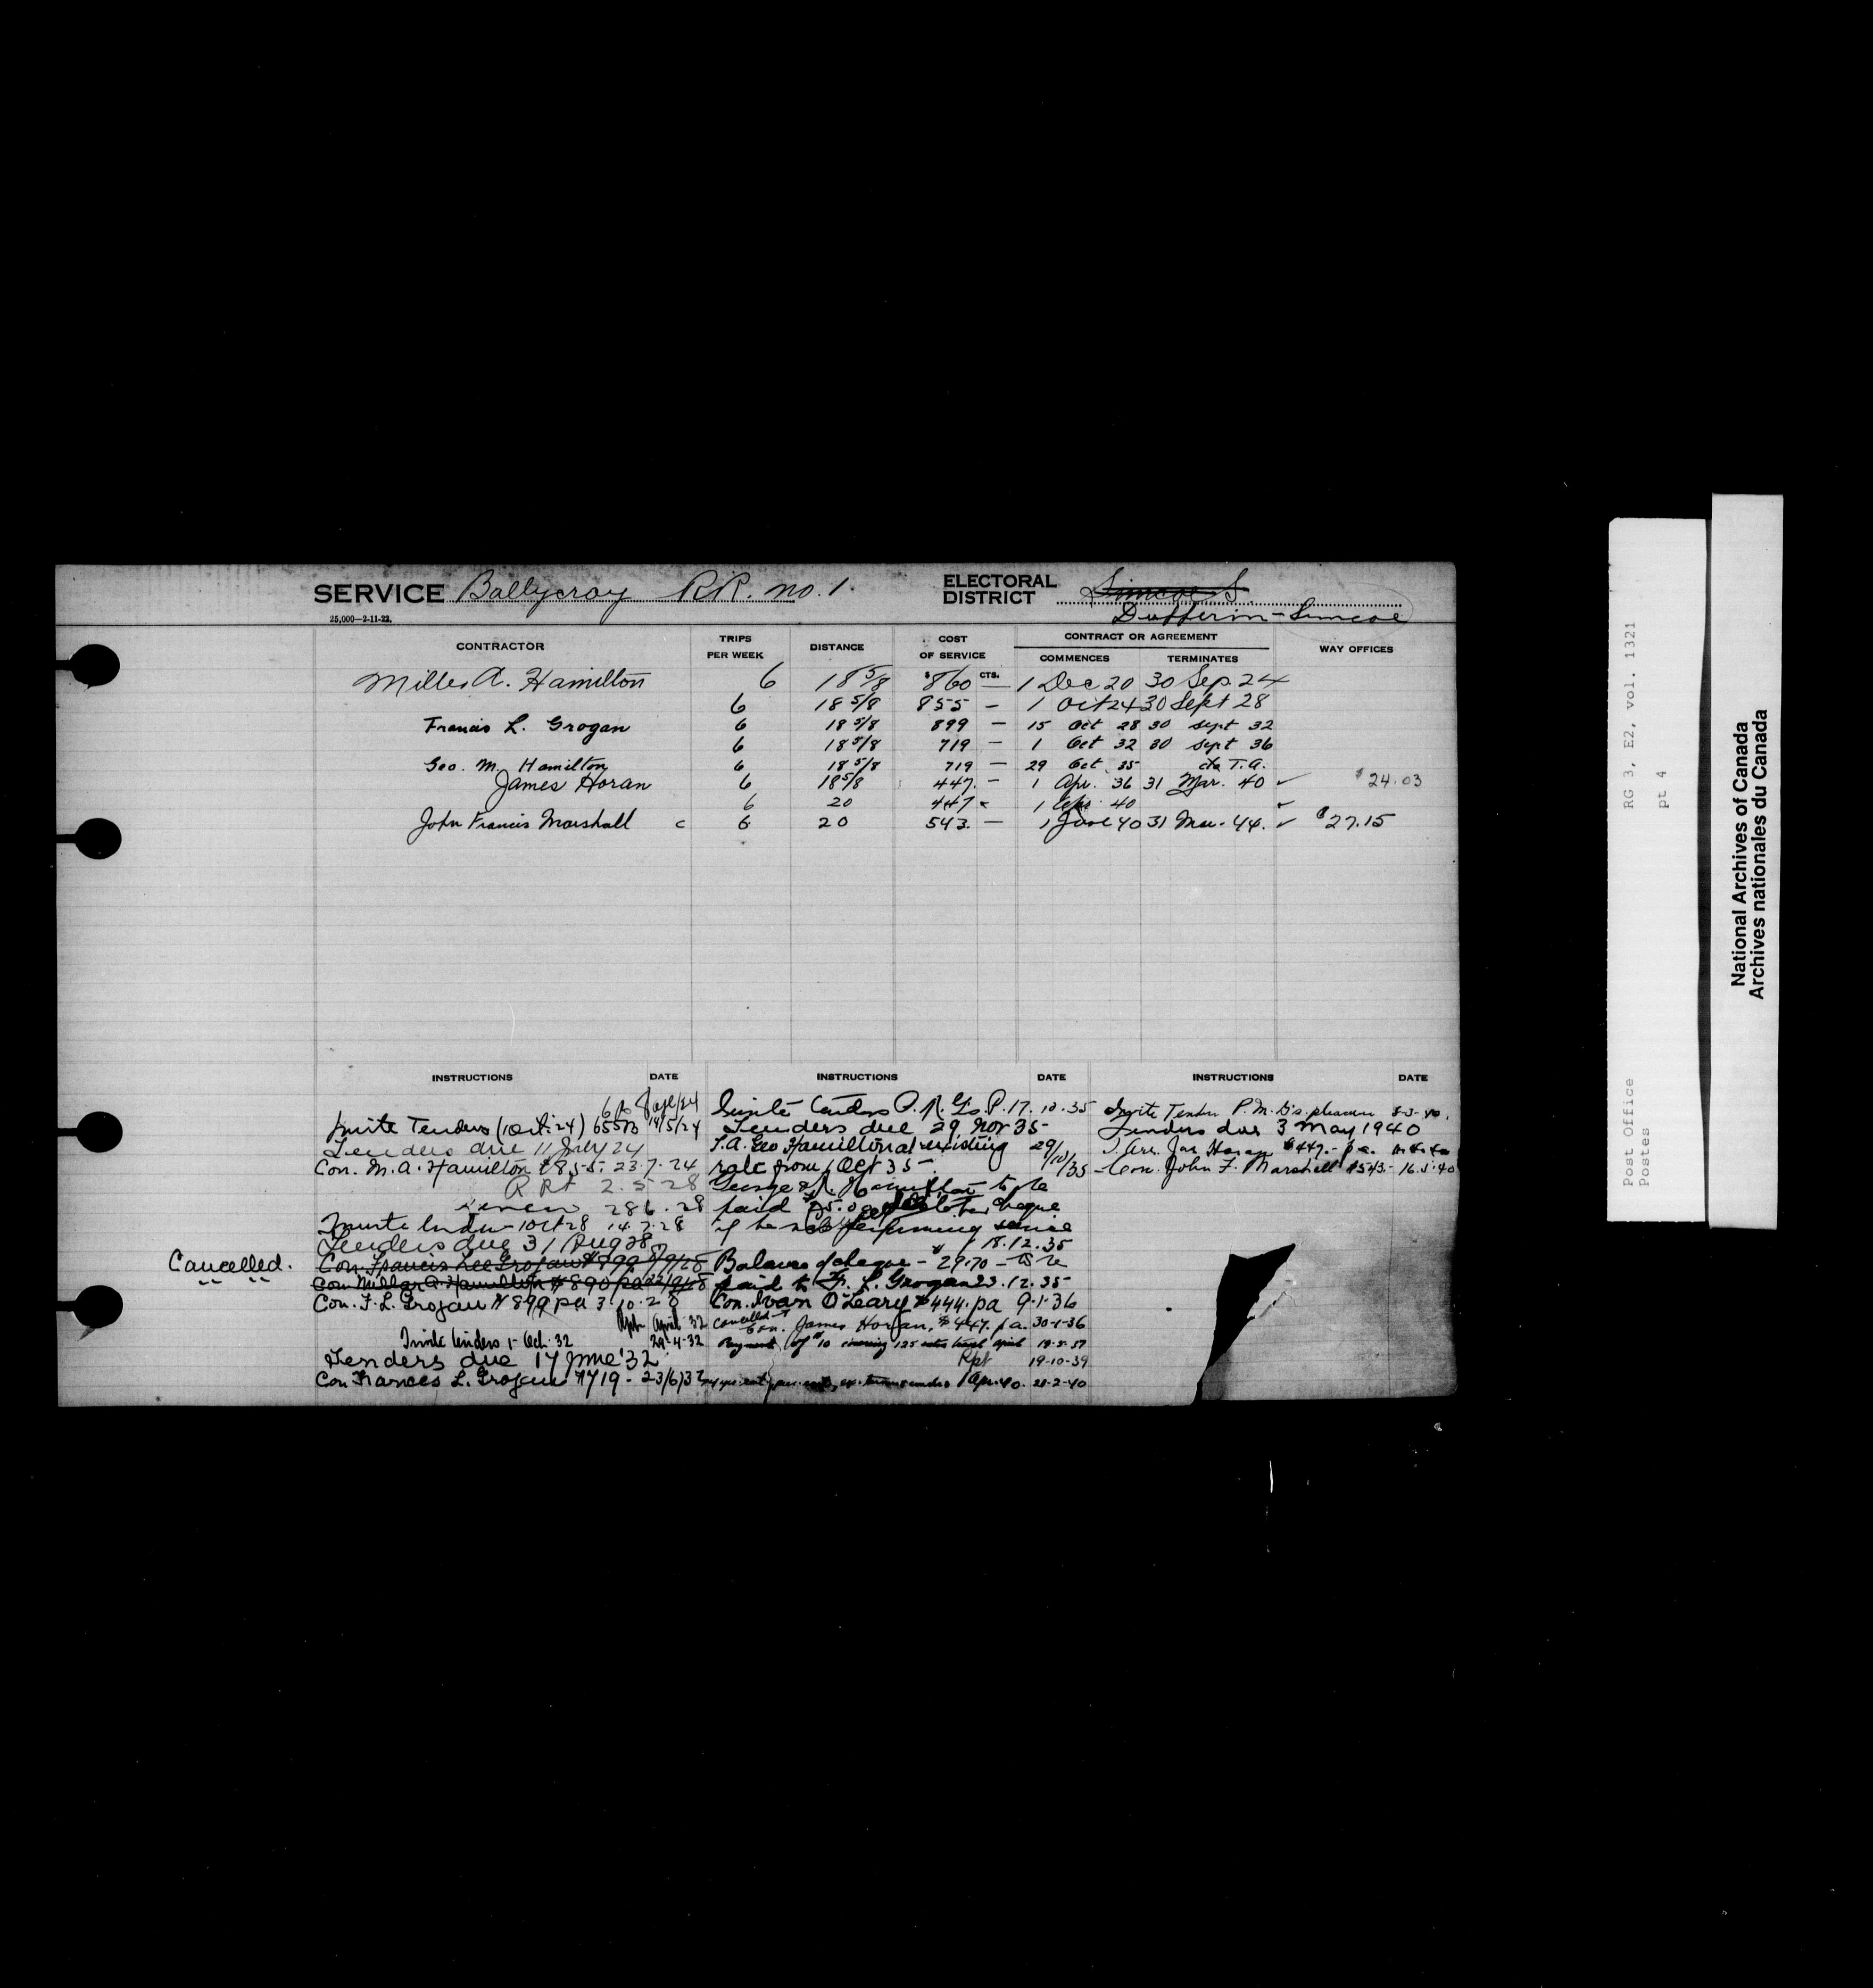 SERVICE Ballycroy RR. no. 1.
ELECTORAL DISTRICT Simcoe S.
Dufferin-Simcoe
25,000—2-11-22.
CONTRACTOR TRIPS PER WEEK DISTANCE COST OF SERVICE CONTRACT OR AGREEMENT COMMENCES TERMINATES WAY OFFICES
Miller A. Hamilton 6 18 5/8 $860 CTS. — 1 Dec 20 30 Sep. 24
6 18 5/8 855 — 1 Oct 24 30 Sept 28
Francis L. Grogan 6 18 5/8 899 — 15 Oct 28 30 Sept 32
6 18 5/8 719 — 1 Oct 32 30 Sept 36
Geo. M. Hamilton 6 18 5/8 719 — 29 Oct 35 T.A.
James Horan 6 18 5/8 447. — 1 Apr. 36 31 Mar. 40 ✓ $24.03
6 20 447 1 Apr. 40 ✓
John Francis Marshall c 6 20 543. — 1 June 40 31 Mar. 44. ✓ $27.15
INSTRUCTIONS DATE INSTRUCTIONS DATE INSTRUCTIONS DATE
Invite Tenders (1 Oct. 24) 14/5/24
Tenders due 11 July 24
Con. M. A. Hamilton $855. 23.7.24
Rpt 2.5.28
28.6.28
Invite 1 Oct 28 14.7.28
Tenders due 31 Aug 28
Cancelled.
Con. Francis Lee Grogan $899
Con. Miller A. Hamilton $890 pa
Con. F. L. Grogan $899 pa 3.10.28
Rpt. April 32
Invite tenders 1 Oct. 32 29-4-32
Tenders due 17 June '32
Con Frances L. Grogan $719 - 23/6/32
Invite tenders 17.10.35
Tenders due 29 Nov 35
T.A. Geo Hamilton at existing 29/10/35
rate from 1 Oct 35
George Hamilton to be
paid cheque
if he performing service
18.12.35
Balance of cheque - $29.70 - to be
paid to F. L. Grogan 23.12.35
Con. Ivan O'Leary $444. pa 9-1-36
Cancelled
Con. James Horan, $447. p.a. 30-1-36
Payment of $10 covering 125 extra travel April
Rpt 19-10-39
1 Apr. 40. 21-2-40
Invite Tender P.M.G's. pleasure
Tenders due 3 May 1940
T. Arr. Jas Horan $447.- p.a.
Con. John F. Marshall $543.- 16.5.40
Post Office RG 3, E2, vol. 1321
Postes pt 4
National Archives of Canada
Archives nationales du Canada